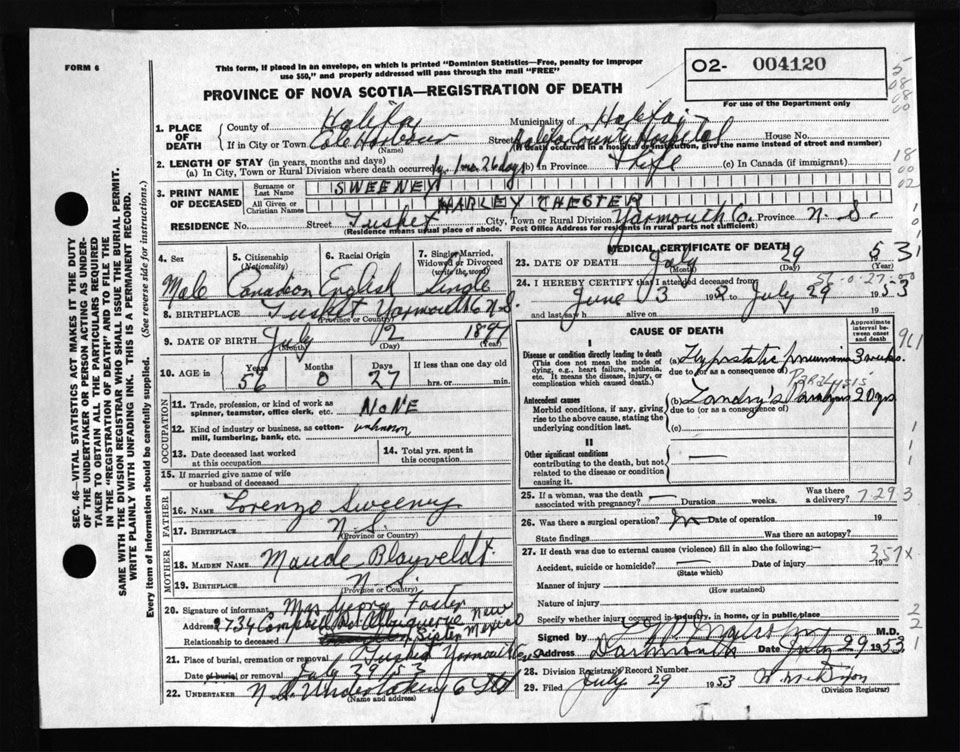 FORM 6
This form, if placed in an envelope, on which is printed "Dominion Statistics—Free, penalty for improper
use $50," and properly addressed will pass through the mail "FREE"
O2- 004120
For use of the Department only
PROVINCE OF NOVA SCOTIA—REGISTRATION OF DEATH
1. PLACE OF DEATH
County of Halifax Municipality of Halifax
If in City or Town Cole Harbour Street Halifax County Hospital House No.
(Name) (If death occurred in hospital or institution, give the name instead of street and number)
2. LENGTH OF STAY (in years, months and days)
(a) In City, Town or Rural Division where death occurred 1 mo. 26 days (b) in Province Life (c) In Canada (if immigrant)
3. PRINT NAME OF DECEASED
Surname or Last Name SWEENEY
All Given or Christian Names HARLEY CHESTER
RESIDENCE No. Street Tusket City, Town or Rural Division Yarmouth Co. Province N.S.
(Residence means usual place of abode. Post Office Address for residents in rural parts not sufficient)
4. Sex Male
5. Citizenship (Nationality) Canadian
6. Racial Origin English
7. Single, Married, Widowed or Divorced (write the word) Single
8. BIRTHPLACE Tusket Yarmouth Co N.S.
(Province or Country)
9. DATE OF BIRTH July 2 189
(Month) (Day) (Year)
10. AGE in Years Months Days If less than one day old
56 0 27 hrs. or min.
OCCUPATION
11. Trade, profession, or kind of work as spinner, teamster, office clerk, etc. NONE
12. Kind of industry or business, as cotton-mill, lumbering, bank, etc. unknown
13. Date deceased last worked at this occupation
14. Total yrs. spent in this occupation
15. If married give name of wife or husband of deceased
FATHER
16. NAME Lorenzo Sweeney
17. BIRTHPLACE N.S.
(Province or Country)
MOTHER
18. MAIDEN NAME Maude Blauveldt
19. BIRTHPLACE N.S.
(Province or Country)
20. Signature of informant Mrs George Foster
Address 2734 Campbell Rd. Albuquerque New Mexico
Relationship to deceased Sister
21. Place of burial, cremation or removal Tusket Yarmouth Co
Date of burial or removal July 29/53
22. UNDERTAKER N.S. Undertaking Co Ltd
(Name and address)
MEDICAL CERTIFICATE OF DEATH
23. DATE OF DEATH July 29 53
(Month) (Day) (Year)
24. I HEREBY CERTIFY that I attended deceased from
June 3 to July 29 1953
and last saw h alive on 19
CAUSE OF DEATH
Approximate interval between onset and death
I
Disease or condition directly leading to death
(This does not mean the mode of dying, e.g., heart failure, asthenia, etc. It means the disease, injury, or complication which caused death.)
(a) Hypostatic pneumonia 3 weeks.
due to (or as a consequence of)
PARALYSIS
Antecedent causes
Morbid conditions, if any, giving rise to the above cause, stating the underlying condition last.
(b) Landry's Paralysis 20 yrs
due to (or as a consequence of)
(c)
II
Other significant conditions
contributing to the death, but not related to the disease or condition causing it.
25. If a woman, was the death associated with pregnancy? Duration weeks. Was there a delivery?
7.29 3
26. Was there a surgical operation? Date of operation 19
State findings Was there an autopsy?
27. If death was due to external causes (violence) fill in also the following:—
Accident, suicide or homicide? Date of injury 19
(State which)
357X
Manner of injury
(How sustained)
Nature of injury
Specify whether injury occurred in industry, in home, or in public place
Signed by M.D.
Address Dartmouth Date July 29 1953
28. Division Registrar's Record Number
29. Filed July 29 1953
(Division Registrar)
SEC. 46—VITAL STATISTICS ACT MAKES IT THE DUTY
OF THE UNDERTAKER OR PERSON ACTING AS UNDER-
TAKER TO OBTAIN ALL THE PARTICULARS REQUIRED
IN THE "REGISTRATION OF DEATH" AND TO FILE THE
SAME WITH THE DIVISION REGISTRAR WHO SHALL ISSUE THE BURIAL PERMIT.
WRITE PLAINLY WITH UNFADING INK. THIS IS A PERMANENT RECORD.
Every item of information should be carefully supplied. (See reverse side for instructions.)